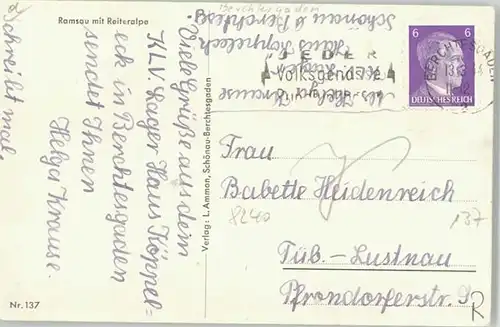 Ramsau mit Reiteralpe
Berchtesgaden
Schönau b/ Berchtesg.
Haus Köppeleck
JEDER
Volksgen
BERCHTESGADEN
6 6
DEUTSCHES REICH
Viele Grüße aus dem
KLV. Lager Haus Köppel-
eck in Berchtesgaden
sendet Ihnen
Helga Krause.
Schreibt mal.
Verlag: L. Ammon, Schönau-Berchtesgaden
Frau
Babette Heidenreich
8240
137
Tüb.-Lustnau
Pfrondorferstr. 9
R
Nr. 137